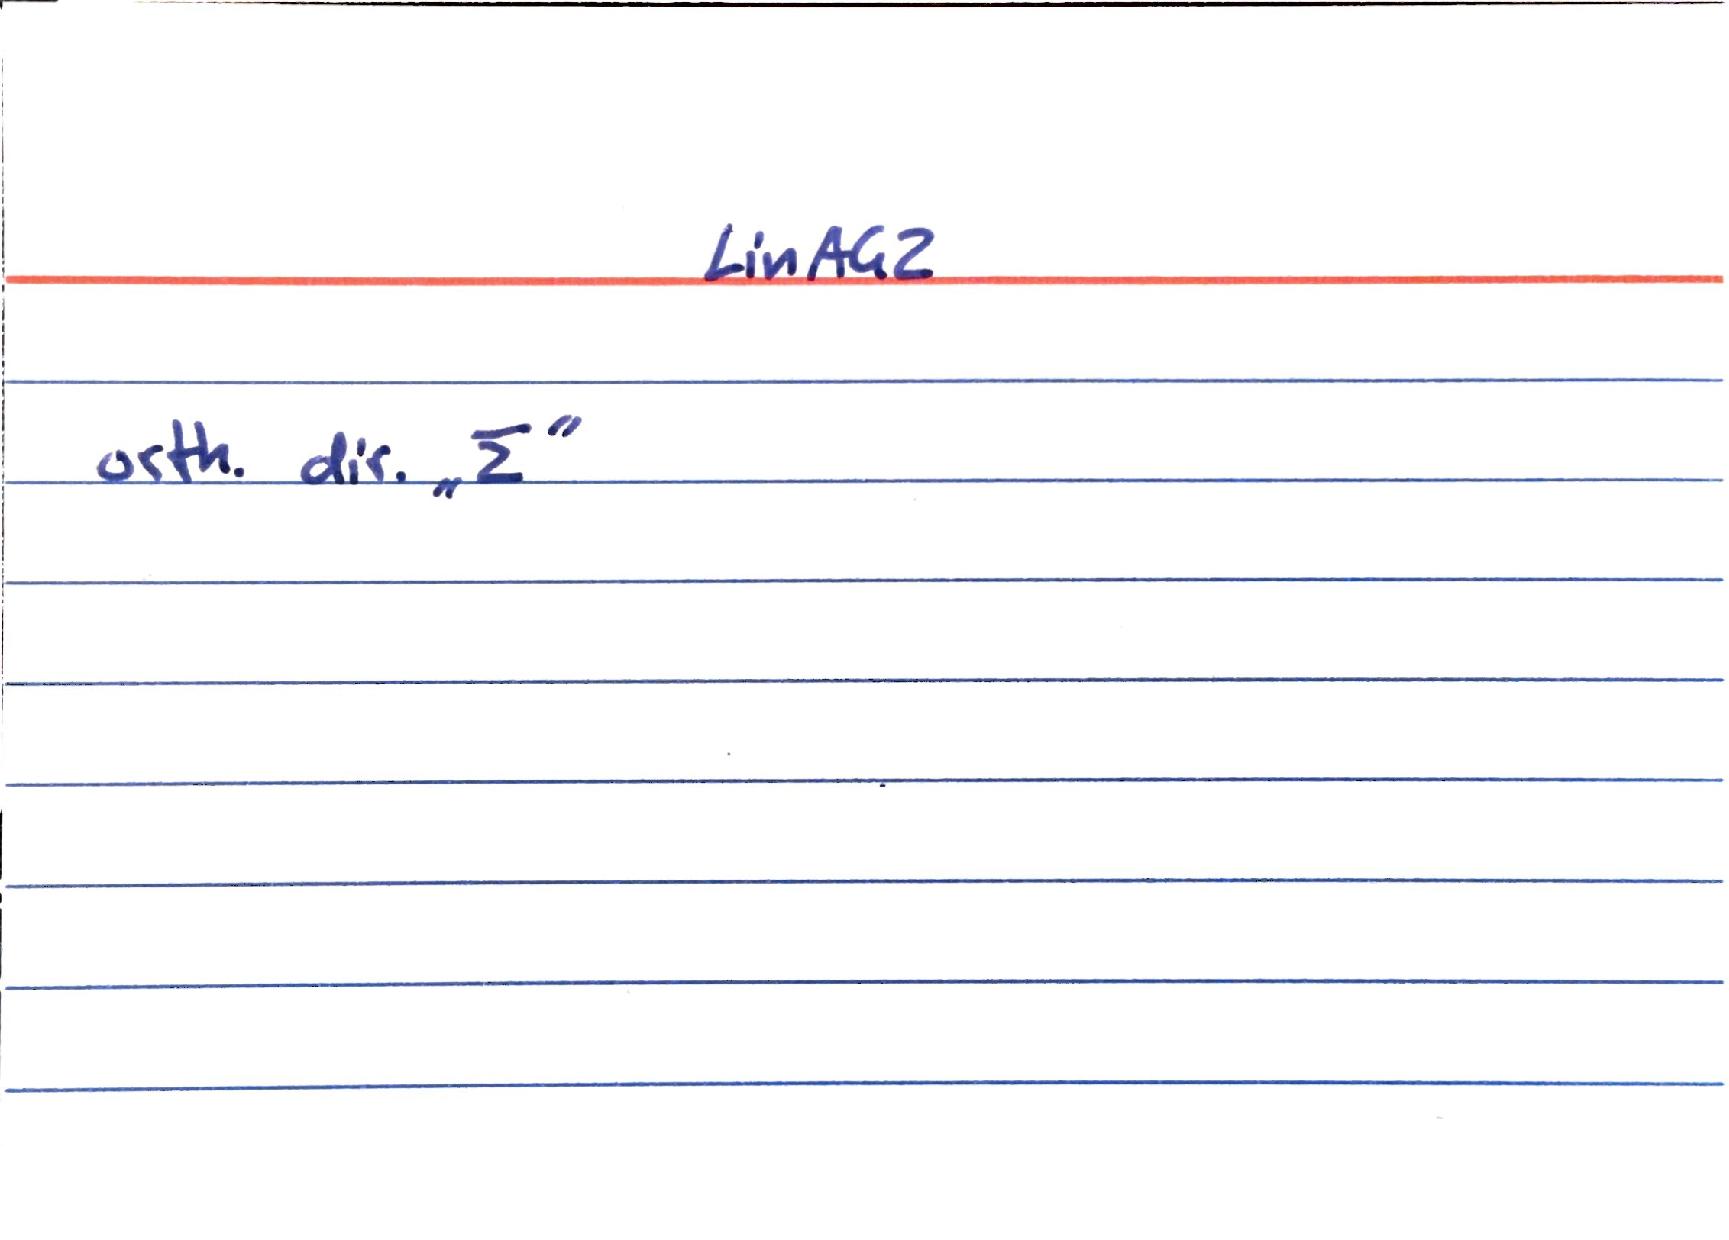 LinAG2
orth. dir. „Σ“